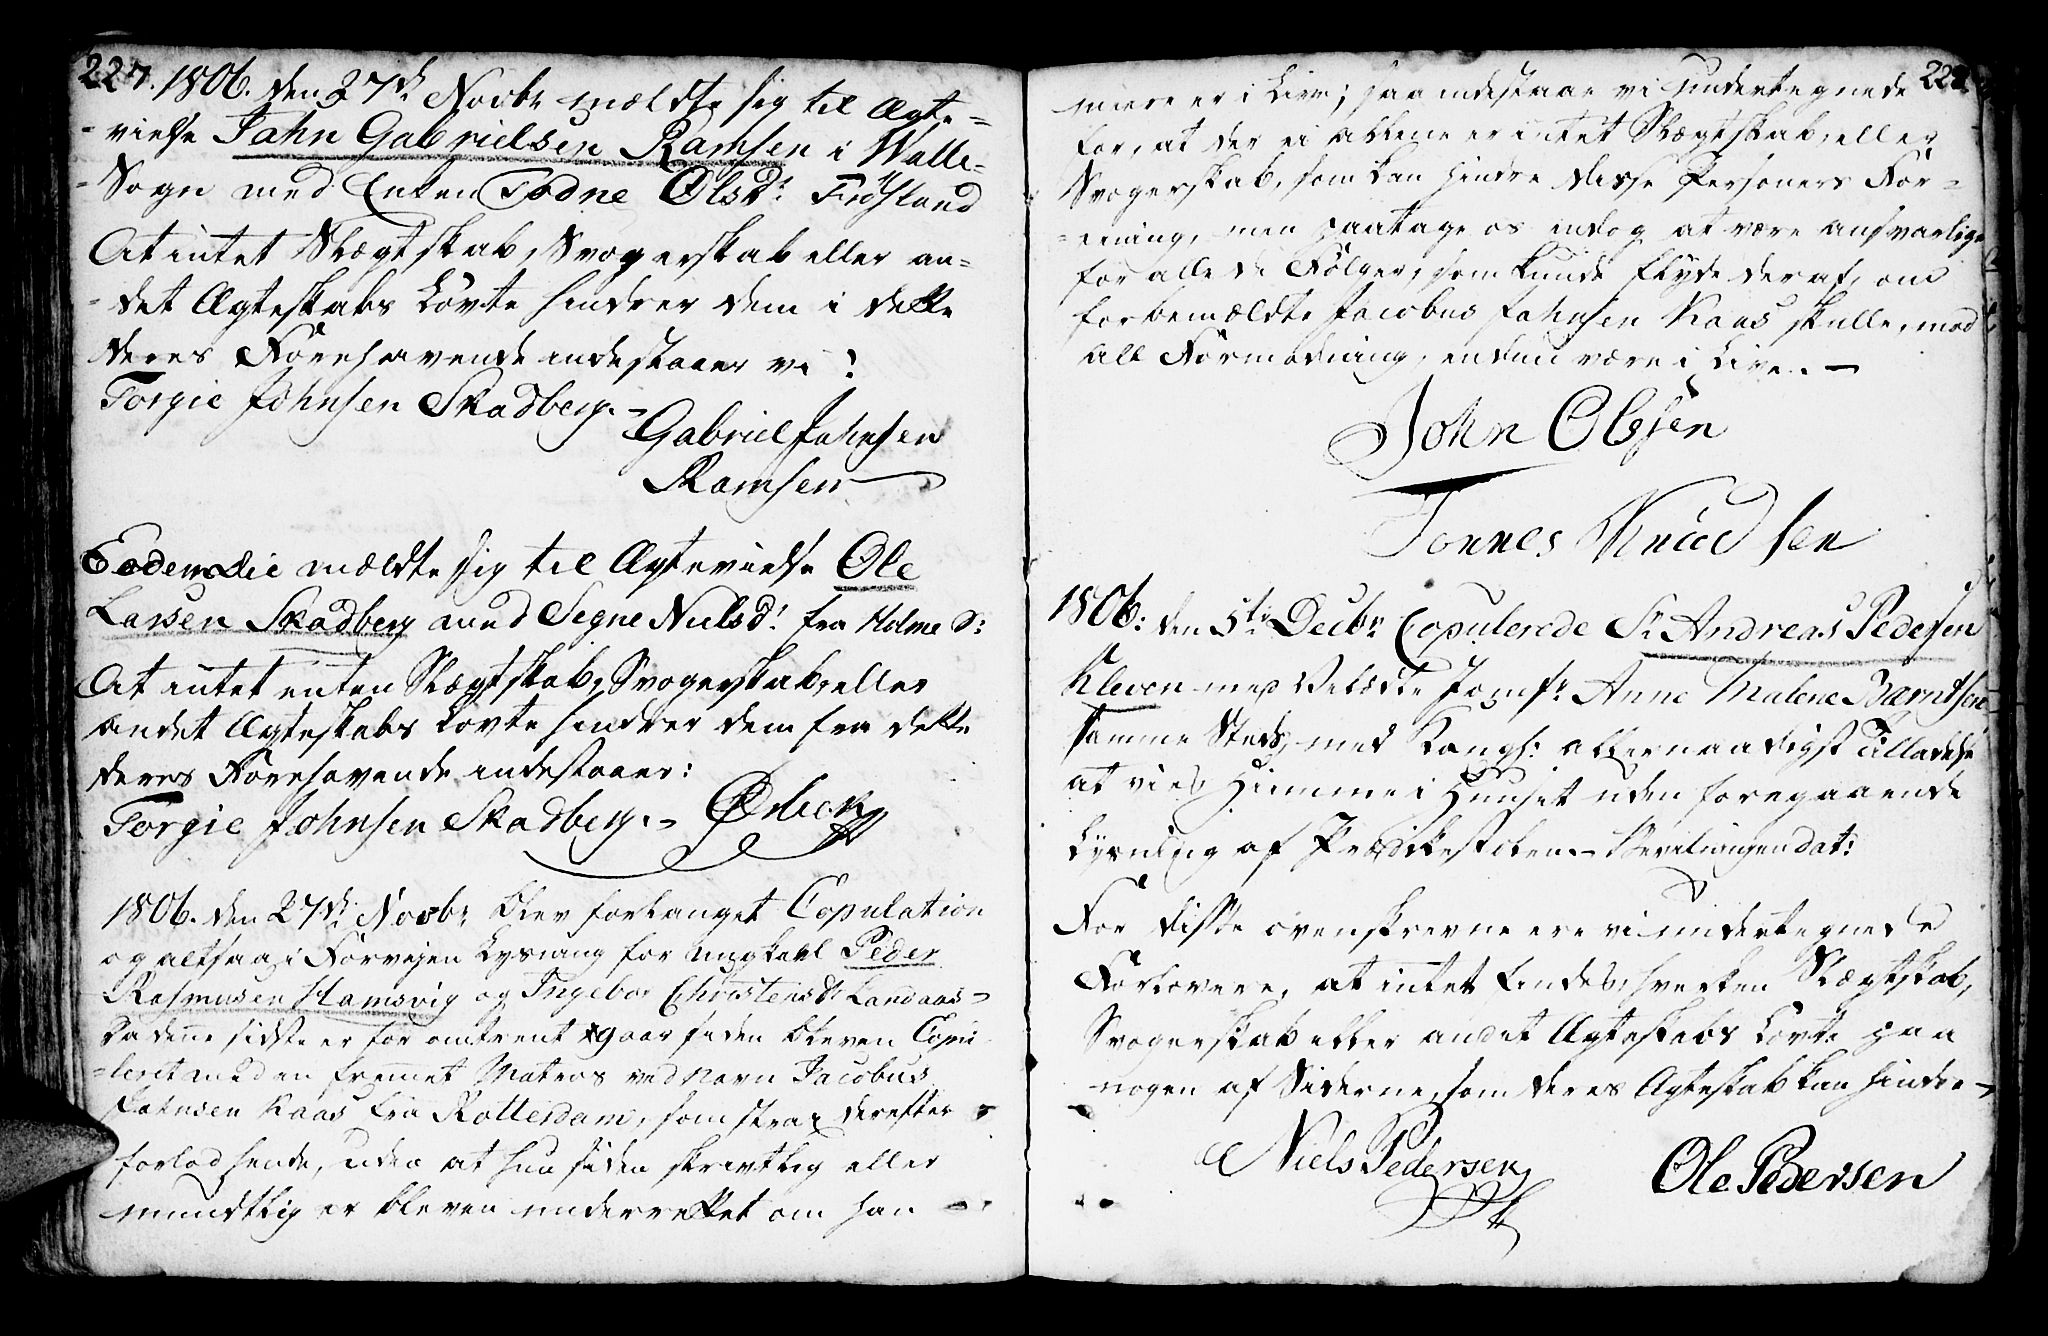 227. 1806. den 27de Novbr mældte sig til Ægte=
=vielse Jahn Gabrielsen Ramsen i Walle-
-Sogn med Enken Todne Olsdr. Fidsland
At intet Slægtskab, Svogerskab eller an=
=det Ægteskabs Løvte hindrer dem i dette
deres Forehavende indestaaer vi:
Torgie Johnsen Skadberg.-
Gabriel Jahnsen
Ramsen
Eodem Die mældte sig til Ægtevielse Ole
Larsen Skadberg med Segne Nielsd: fra Holme S:
At intet enten Slægtskab, Svogerskab, eller
andet Ægteskabs Løvte hindrer dem fra dette
deres Forehavende indestaaer:
Torgie Johnsen Skadberg.- Ørbeck
1806. den 27de Novbr blev forlanget Copulation
og altsaa i Forvejen Lysning for ungkarl Peder
Rasmusen Hamsvig og Ingebor Christensdr Landaas-
da denne sidste er for omtrent 19 aar siden bleven Copu
-leret med en fremmet Matros ved Navn Jacobus
Jahnsen Kaas fra Rotterdam, som strax derefter
forlod hende, uden at hun siden skrivtlig eller
mundtlig er bleven underrettet om han
222
meere er i Live; saa indestaae vi undertegnede
for, at der ei allene er intet Slægtskab, eller
Svogerskab, som kan hindre disse Personers For-
=eening, men paatage os endog at være ansvarlige
for alle de Følger, som kunde flyde deraf, om
forbemældte Jacobus Jahnsen Kaas skulle, mod
all Formodning, endnu være i Live. -
John Olsen
Tønnes Knudsen
1806: den 5te Decbr Copulerede Sr Andreas Pedersen
Kleven med Velædle Jomfr Anne Malene Bærntsen
samme Steds, med Kongl: allernaadigst Tilladelse
at vies hjemme i Huuset uden foregaaende
Lysning af Prædikestolen.- Bevilningen dat:
For disse ovenskrevne ere vi undertegnede
Forlovere, at intet findes, hverken Slægtskab,
Svogerskab eller andet Ægteskabs Løvte paa
nogen af Siderne, som deres Ægteskab kan hindre-
Niels Pedersen
Ole Pedersen